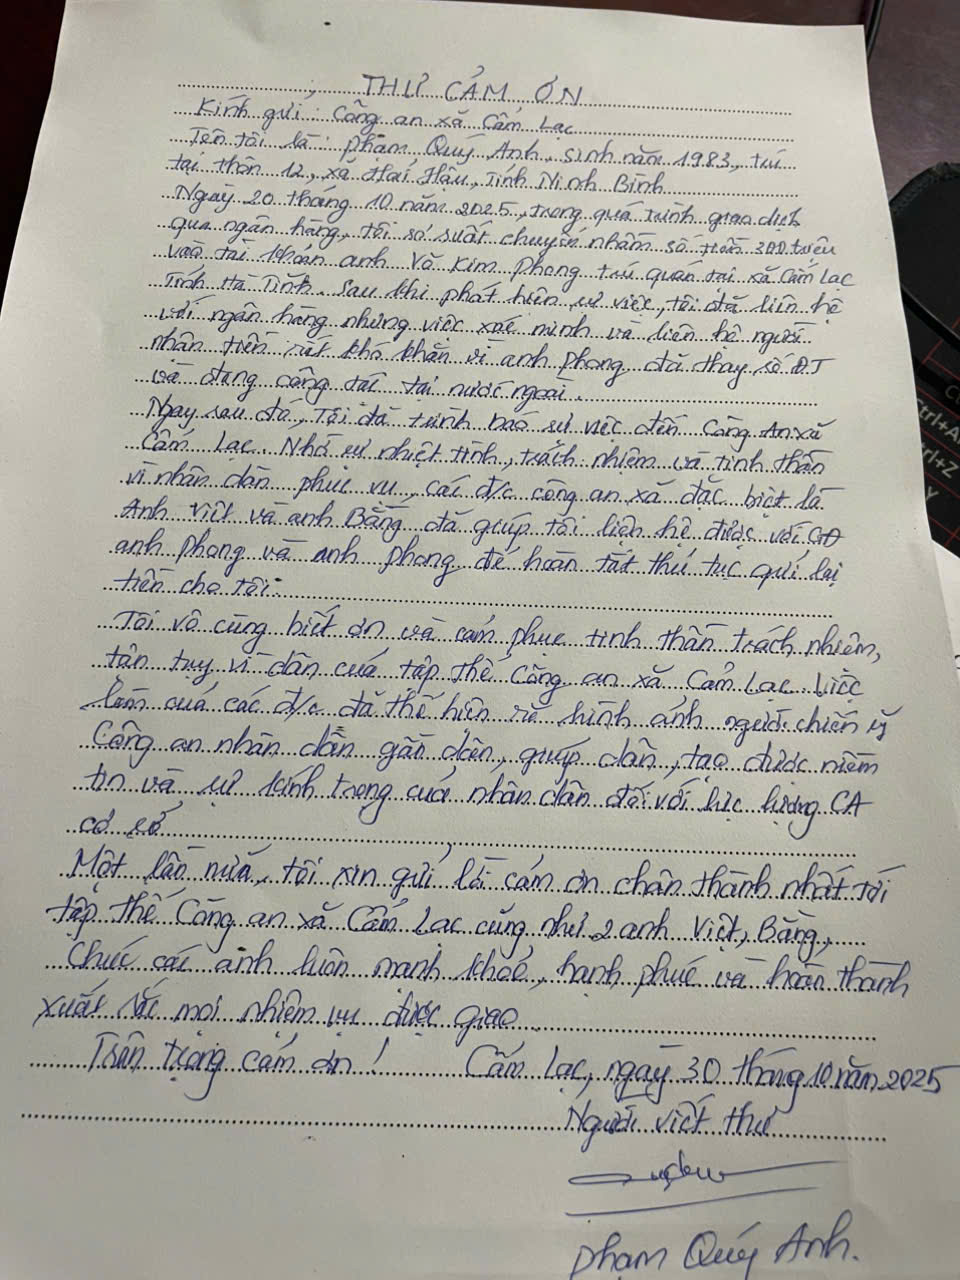 THƯ CẢM ƠN
Kính gửi: Công an xã Cẩm Lạc
Tên tôi là: Phạm Quý Anh, sinh năm 1983, trú
tại thôn 12, xã Hải Hậu, Tỉnh Ninh Bình
Ngày 20 tháng 10 năm 2025, trong quá trình giao dịch
qua ngân hàng, tôi sơ suất chuyển nhầm số tiền 300 triệu
vào tài khoản anh Võ Kim Phong trú quán tại xã Cẩm Lạc
Tỉnh Hà Tĩnh. Sau khi phát hiện sự việc, tôi đã liên hệ
với ngân hàng nhưng việc xác minh và liên hệ người
nhận tiền rất khó khăn vì anh Phong đã thay số ĐT
và đang công tác tại nước ngoài.
Ngay sau đó, Tôi đã trình báo sự việc đến Công An xã
Cẩm Lạc. Nhờ sự nhiệt tình, trách nhiệm và tinh thần
vì nhân dân phục vụ, các đ/c công an xã đặc biệt là
Anh Việt và anh Bằng đã giúp tôi liên hệ được với GĐ
anh Phong và anh Phong để hoàn tất thủ tục gửi lại
tiền cho tôi.
Tôi vô cùng biết ơn và cảm phục tinh thần trách nhiệm,
tận tụy vì dân của tập thể Công an xã Cẩm Lạc. Việc
làm của các đ/c đã thể hiện rõ hình ảnh người chiến sỹ
Công an nhân dân gần dân, giúp dân, tạo được niềm
tin và sự kính trọng của nhân dân đối với lực lượng CA
cơ sở
Một lần nữa, tôi xin gửi lời cảm ơn chân thành nhất tới
tập thể Công an xã Cẩm Lạc cũng như 2 anh Việt, Bằng,
Chúc các anh luôn mạnh khoẻ, hạnh phúc và hoàn thành
xuất sắc mọi nhiệm vụ được giao
Trân trọng cảm ơn! Cẩm Lạc, ngày 30 tháng 10 năm 2025
Người viết thư
Phạm Quý Anh.